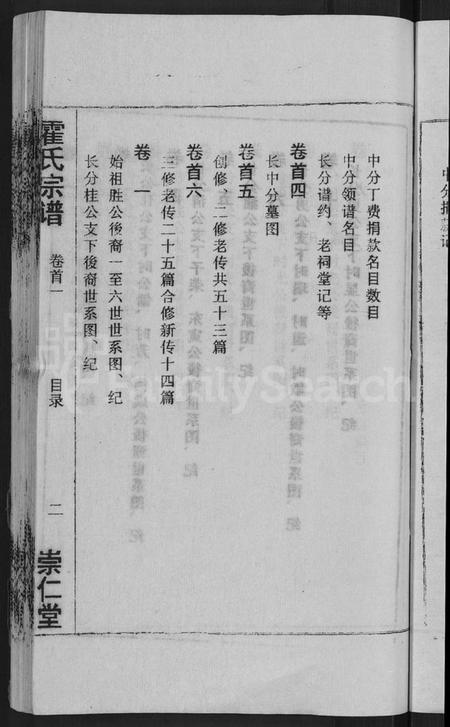 中分丁费捐款名目数目
中分领谱名目
长分谱约、老祠堂记等
卷首四
长中分墓图
卷首五
创修、二修老传共五十三篇
卷首六
三修老传二十五篇合修新传十四篇
卷一
始祖胜公後裔一至六世世系图、纪
长分桂公支下後裔世系图、纪
霍氏宗谱
卷首一
目录
二
崇仁堂
FamilySearch